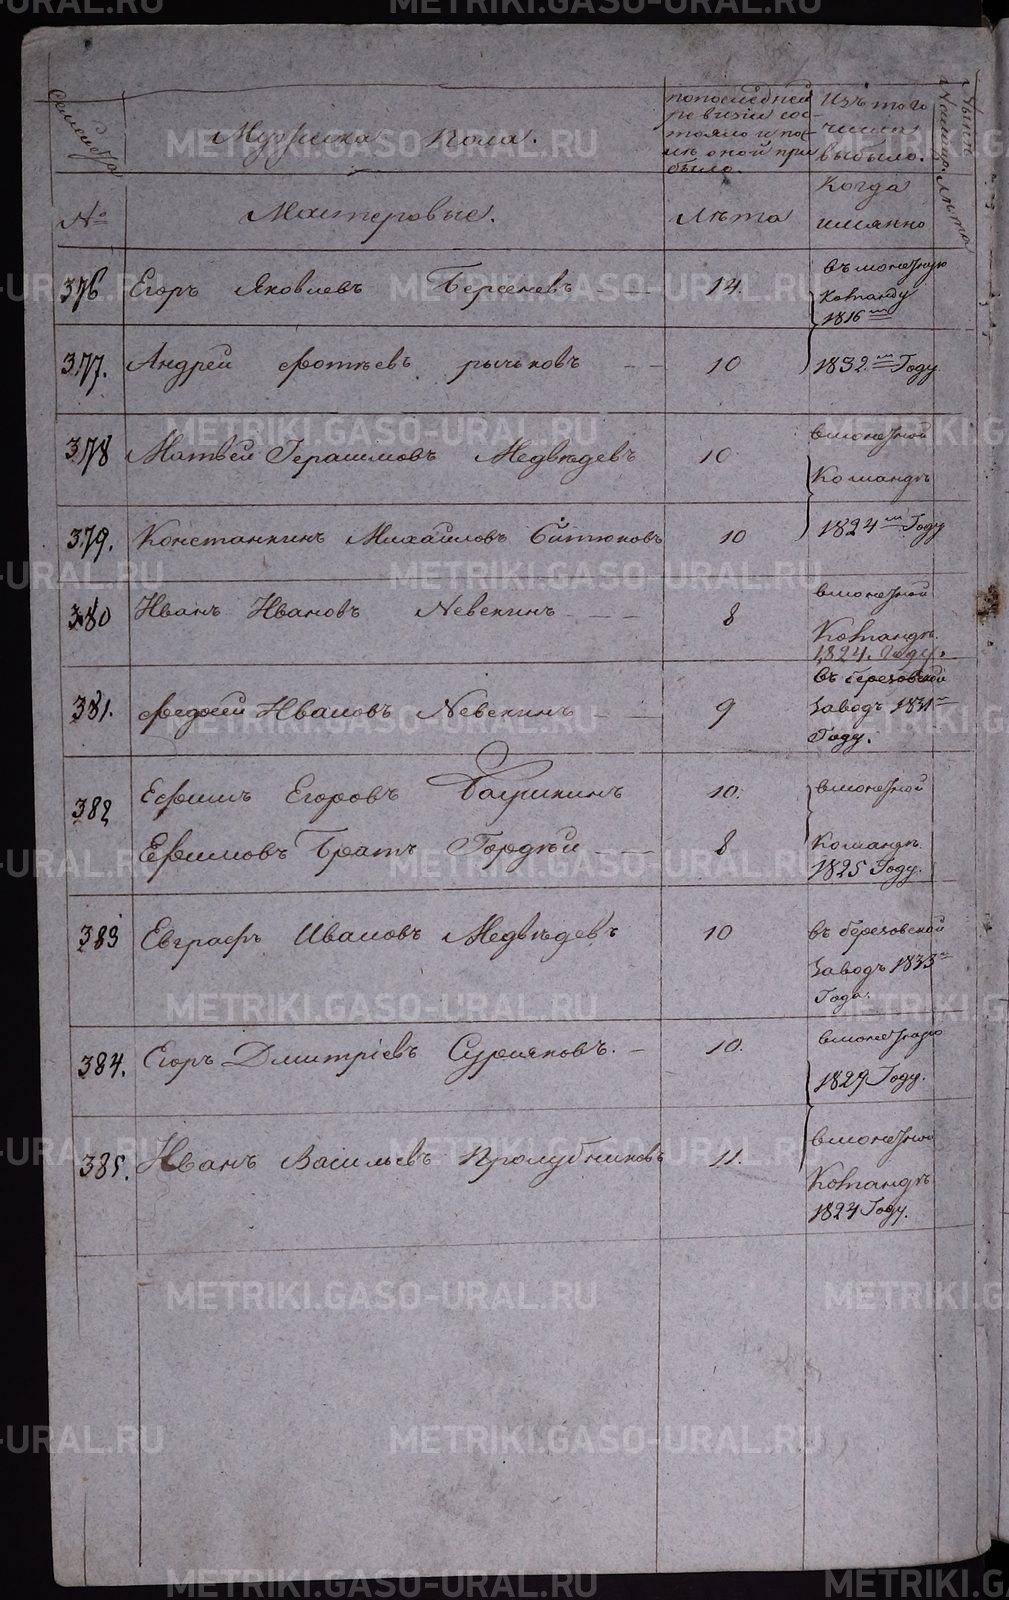 Семейства
Мужеска пола.
попоследней
ревизiи сос-
тояло и по-
слѣ оной при
было.
Изъ того
числа
выбыло.
Нынѣ
Налицо.
Лѣта
№
Мастеровые.
Лѣта
Когда
имянно
376 Егоръ Яковлевъ Берсеневъ 14.
въ монетную
команду
1816го
377. Андрей Фотѣевъ рычьковъ 10
1832го Году
378 Матвей Герасимовъ Медвѣдевъ 10
вмонетной
Командѣ
379. Константинъ Михайловъ 10
1824го Году
380 Иванъ Ивановъ Невекинъ 8
вмонетной
Командѣ.
1824. Году.
381. Федосей Ивановъ Невекинъ 9
въ березовской
Заводъ 1831го
Году.
382 Ефимъ Егоровъ 10.
вмонетной
Ефимовъ Братъ Гордѣй 8
Командѣ.
1825 Году.
383 Евграфъ Ивановъ Медвѣдевъ 10
въ березовской
Заводъ 1833го
Года.
384. Егоръ Дмитрiевъ 10.
вмонетную
1829 Году.
385. Иванъ Васильевъ Пролубниковъ 11.
вмонетной
Командѣ
1824 Году.
METRIKI.GASO-URAL.RU